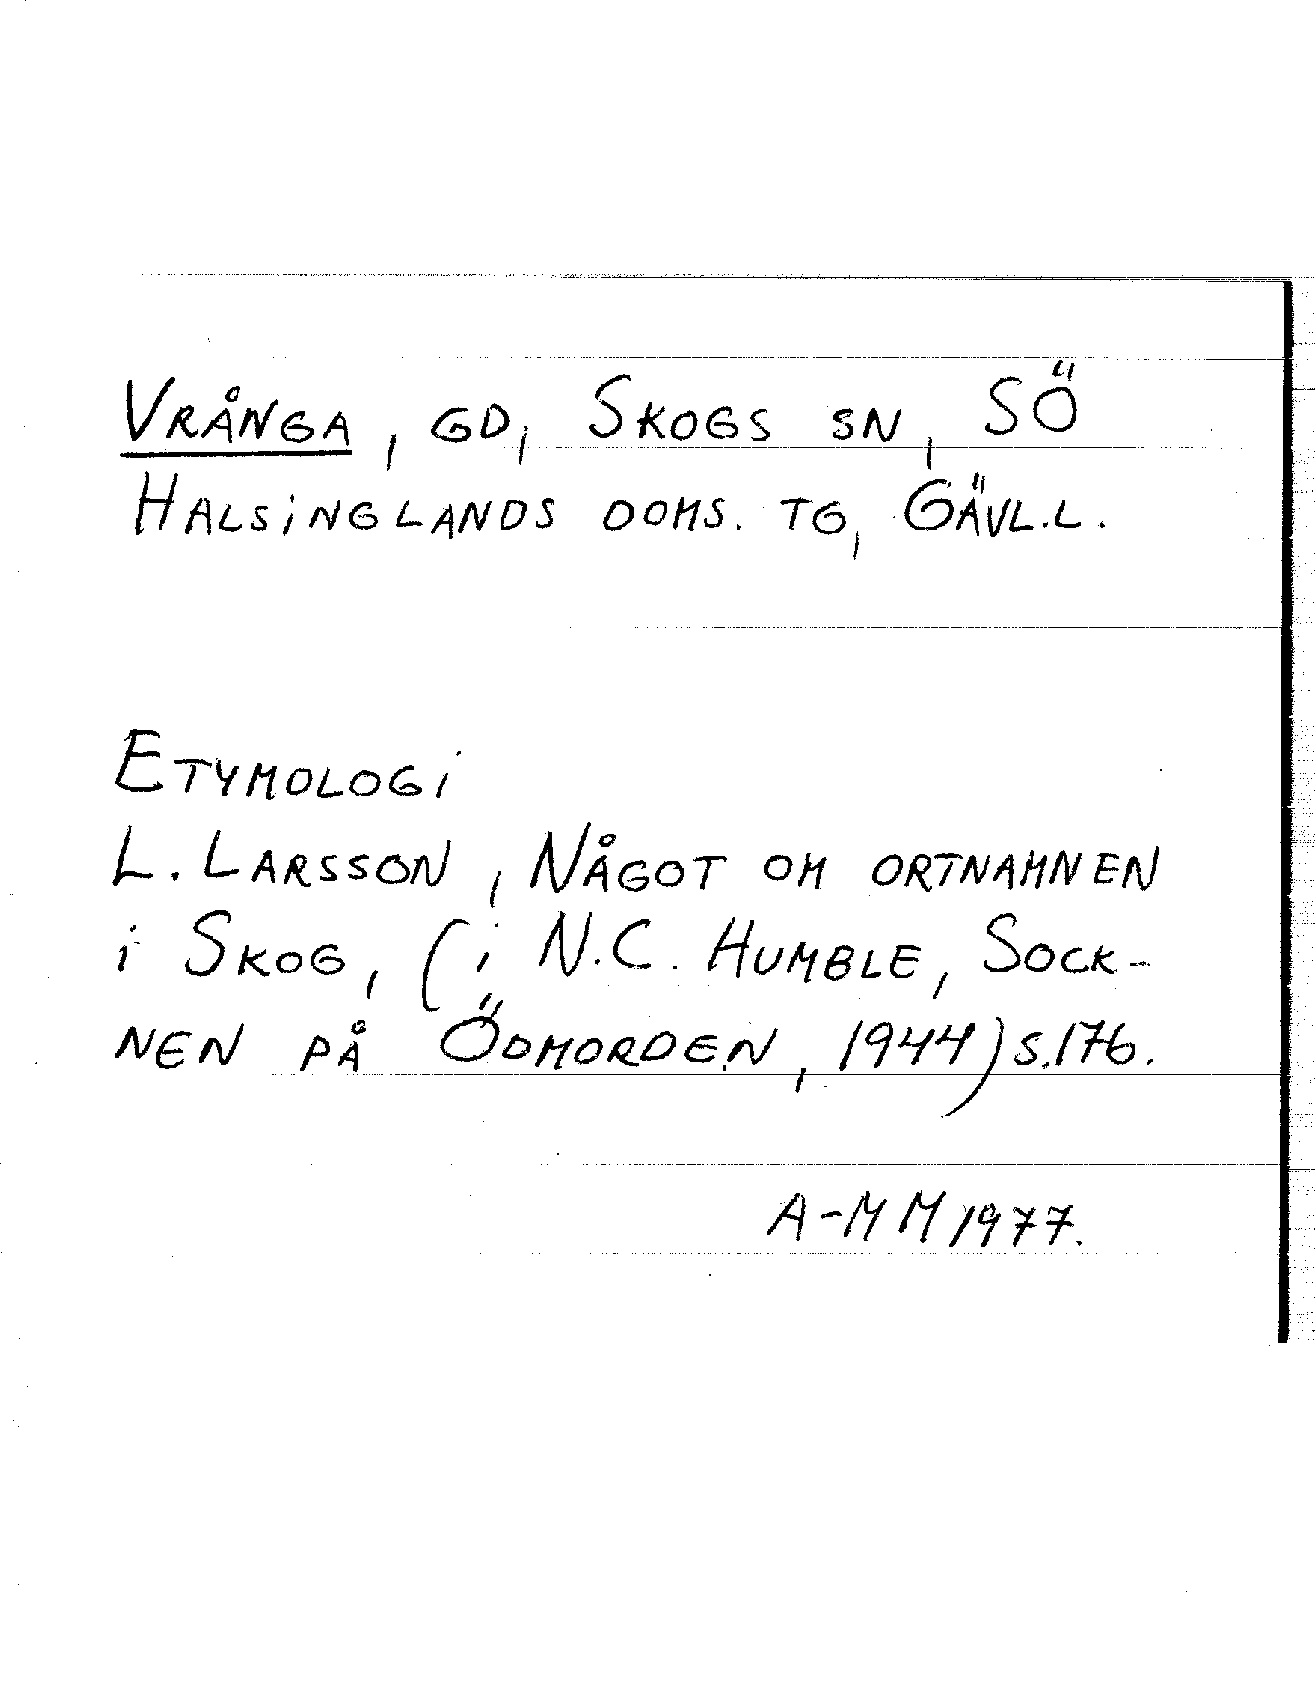 VRÅNGA, GD, SKOGS SN, SÖ
HALSINGLANDS DOMS. TG, GÄVL.L.
ETYMOLOGI
L. LARSSON, NÅGOT OM ORTNAMNEN
i SKOG, (i N.C. HUMBLE, SOCK-
NEN PÅ ÖDMORDEN, 1944) S.176.
A-MM 1977.